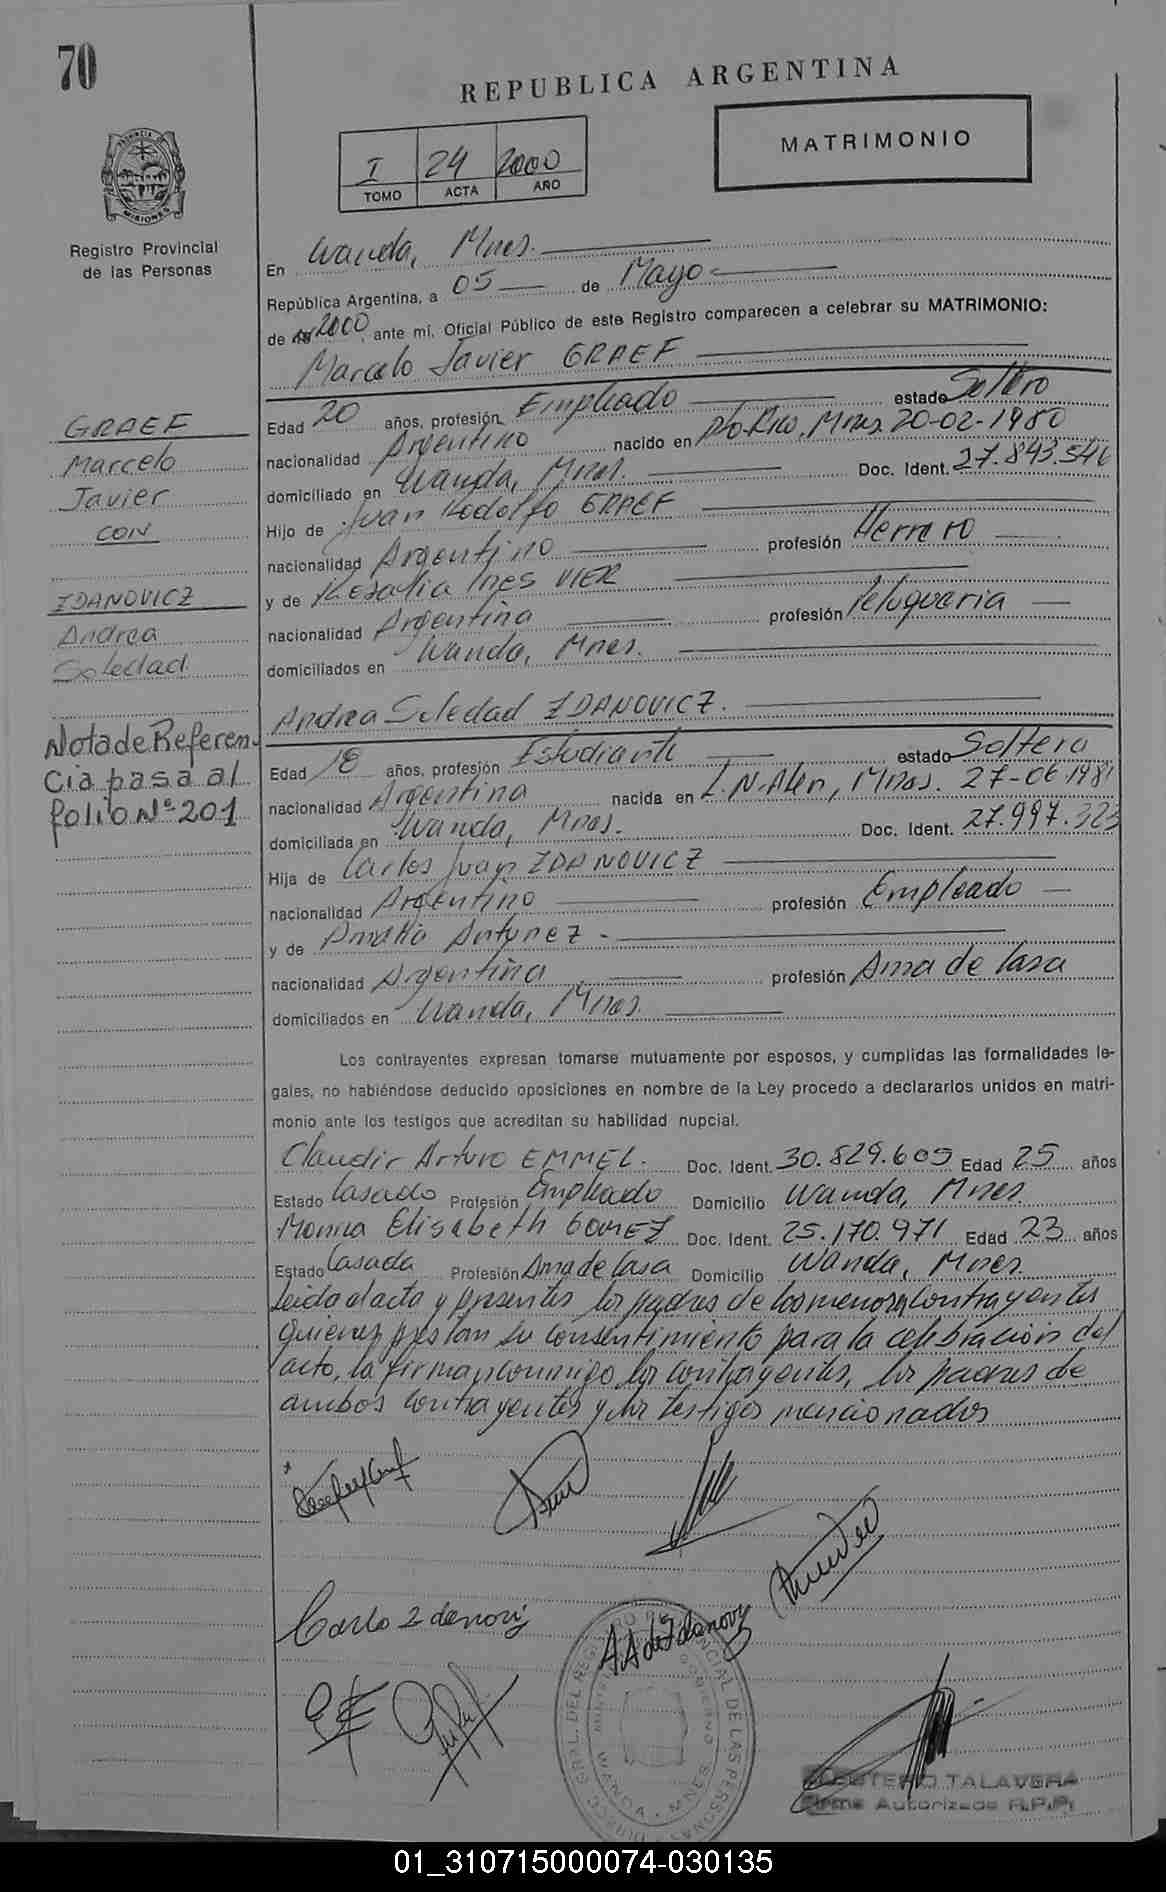 70
REPUBLICA ARGENTINA
MATRIMONIO
I 24 2000
TOMO ACTA AÑO
PROVINCIA DE MISIONES
Registro Provincial
de las Personas
En Wanda, Mnes.
República Argentina, a 05 de Mayo
de 2000, ante mí, Oficial Público de este Registro comparecen a celebrar su MATRIMONIO:
Marcelo Javier GRAEF
Edad 20 años, profesión Empleado estado Soltero
nacionalidad Argentino nacido en Pto. Rico, Mnes. 20-02-1980
domiciliado en Wanda, Mnes. Doc. Ident. 27.843.546
Hijo de Juan Rodolfo GRAEF
nacionalidad Argentino profesión Herrero
y de Rosalia Ines VIER
nacionalidad Argentina profesión Peluqueria
domiciliados en Wanda, Mnes.
GRAEF
Marcelo
Javier
CON
ZDANOVICZ
Andrea
Soledad
Nota de Referen-
cia pasa al
folio Nº 201
Andrea Soledad ZDANOVICZ.
Edad 18 años, profesión Estudiante estado Soltera
nacionalidad Argentina nacida en L. N. Alen, Mnes. 27-06-1981
domiciliada en Wanda, Mnes. Doc. Ident. 27.997.323
Hija de Carlos Juan ZDANOVICZ
nacionalidad Argentino profesión Empleado
y de Amalia Antunez -
nacionalidad Argentina profesión Ama de Casa
domiciliados en Wanda, Mnes.
Los contrayentes expresan tomarse mutuamente por esposos, y cumplidas las formalidades le-
gales, no habiéndose deducido oposiciones en nombre de la Ley procedo a declararlos unidos en matri-
monio ante los testigos que acreditan su habilidad nupcial.
Claudir Arturo EMMEL. Doc. Ident. 30.829.609 Edad 25 años
Estado Casado Profesión Empleado Domicilio Wanda, Mnes.
Monica Elisabeth GOMEZ Doc. Ident. 25.170.971 Edad 23 años
Estado Casada Profesión Ama de Casa Domicilio Wanda, Mnes.
Leida el acta y presentes los padres de los menores contrayentes
quienes prestan su consentimiento para la celebracion del
acto, la firman conmigo los contrayentes, los padres de
ambos contrayentes y los testigos mencionados
Carlo Zdanovi
A A de Zdanovi
DIRECC. GRAL. DEL REGISTRO PROVINCIAL DE LAS PERSONAS
WANDA - MNES
TALAVERA
Firma Autorizada R.P.P.
01_310715000074-030135